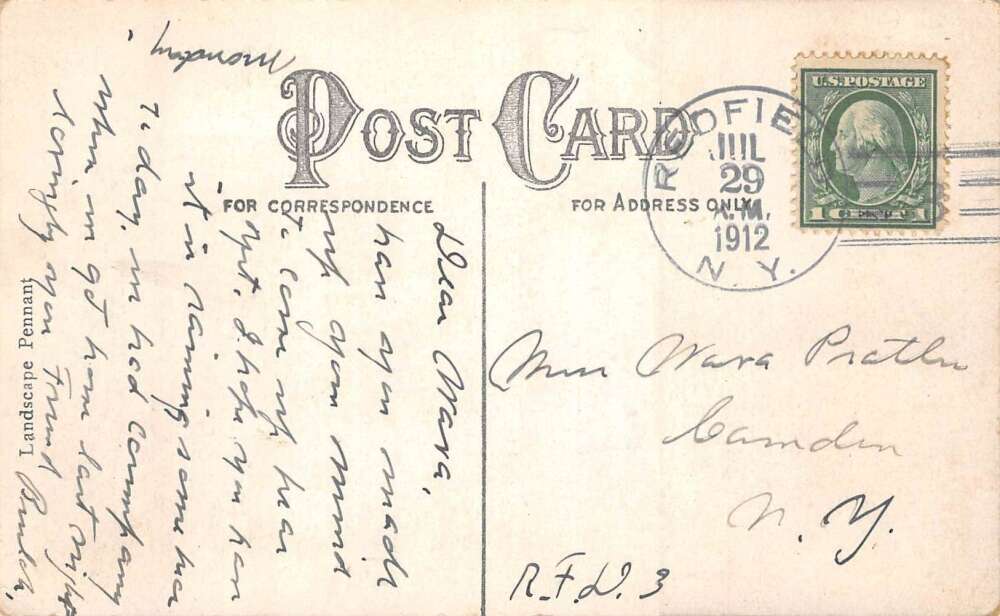 POST CARD
FOR CORRESPONDENCE
FOR ADDRESS ONLY
U.S. POSTAGE
1 CENT 1
REDFIELD
JUL
29
A.M.
1912
N. Y.
Landscape Pennant
Monday
Dear Wava,
have you made
up your mind
to come up hear
yet. I hope you have
it is raining some her
to day, we had company
when we got home last night
your Friend
Miss Wava Prathu
Camden
N. Y.
R.F.D. 3